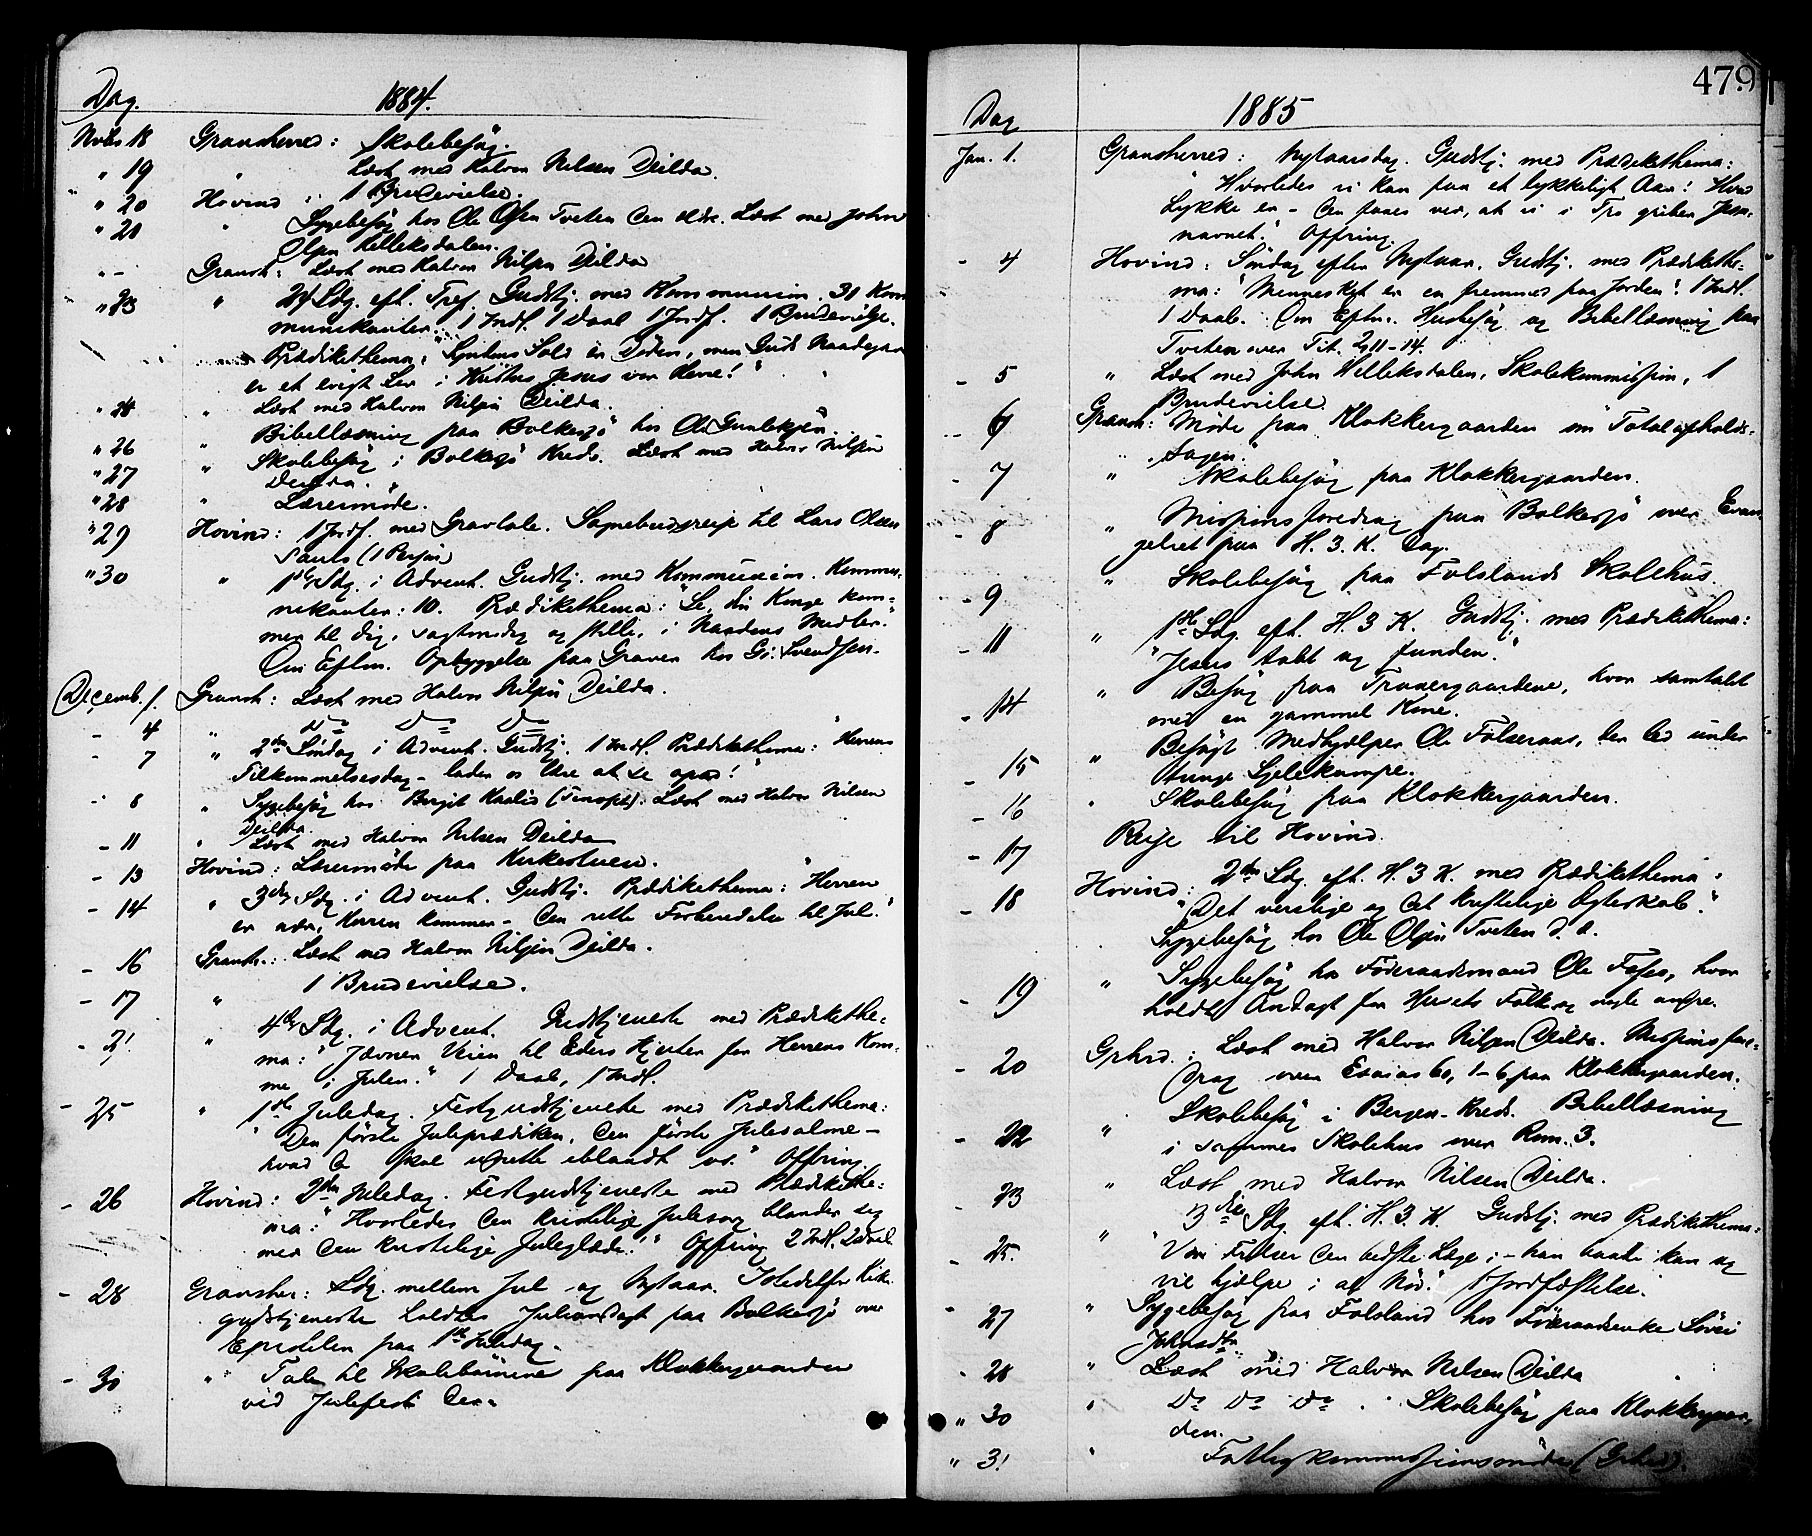 Dag. 1884.
Novbr 18 Gransherred: Skolebesøg.
" 19 " Læst med Halvor Nilsen Deilda.
" 20 Hovind: 1 Brudevielse.
" 21 " Sygebesøg hos Ole Olsen Tveten den ældr. Læst med John
Olsen Helleksdalen.
" - Gransh: Læst med Halvor Nilsen Deilda
" 23 " 24 Sdg. eft. Tref. Gudstj. med Kommunion. 31 Kom-
munikanter. 1 Indl. 1 Daab 1 Jordf. 1 Brudevielse.
Prædikethema: "Syndens Sold er Døden, men Guds Naadegave
er et evigt Liv i Kristus Jesus vor Herre!"
" 24 " Læst med Halvor Nilsen Deilda.
" 26 " Bibellæsning paa Bolkesjø hos Ole Gunleksen.
" 27 " Skolebesøg i Bolkesjø Kreds. Læst med Halvor Nilsen
Deilda.
" 28 " Lærermøde.
" 29 Hovind: 1 Jordf. med Gravtale. Sognebudsreise til Lars Olsen
(1 Person)
" 30 " 1ste Sdg. i Advent. Gudstj. med Kommunion. Kommu-
nikanter: 10. Prædikethema: "Se, din Konge kom-
mer til dig, sagtmodig og stille, i Naadens Midler."
Om Eftm. Opbyggelse paa Graver hos G: Svendsen.
Decemb. 1. Gransh: Læst med Halvor Nilsen Deilda.
- 4 " Do Do Do
- 7 " 2den Søndag i Advent. Gudstj. 1 Indl. Prædikethema: "Herrens
Tilkommelsesdag - lader os lære at se opad!"
- 8 " Sygebesøg hos Birgit Kaalid. Læst med Halvor Nilsen
Deilda.
- 11 " Læst med Halvor Nilsen Deilda
- 13 Hovind: Lærermøde paa Kirkestuen.
- 14 " 3die Sdg. i Advent. Gudstj. Prædikethema: "Herren
er nær, Herren kommer - den rette Forberedelse til Jul."
- 16 Gransh.: Læst med Halvor Nilsen Deilda.
- 17 " 1 Brudevielse.
- 21 " 4de Sdg. i Advent. Gudstjeneste med Prædikethe-
ma: "Jævner Veien til Eders Hjerter for Herrens Kom-
me i Julen." 1 Daab, 1 Indl.
- 25 " 1ste Juledag. Festgudstjeneste med Prædikethema:
"Den første Juleprædiken, den første Julesalme -
hvad de skal udrette iblandt os." Offring.
- 26 Hovind: 2den Juledag. Festgudstjeneste med Prædikethe-
ma: "Hvorledes den kristelige Julesorg blander sig
med den kristelige Juleglæde." Offring 2 Indl. 2 Daab.
- 28 Gransher: Sdg. mellem Jul og Nytaar. Istedetfor Kirke-
gudstjeneste holdtes Juleandagt paa Bolkesjø over
Epistelen paa 1ste Juledag.
- 30 " Tale til Skolebørnene paa Klokkergaarden
ved Julefest der.
479
Dag 1885
Jan. 1. Gransherred: Nytaarsdag. Gudstj. med Prædikethema:
"Hvorledes vi kan faa et lykkeligt Aar: Hvad
Lykke er - den faaes ved, at vi i Tro griber Jesu-
navnet." Offring.
- 4 Hovind: Søndag efter Nytaar. Gudstj. med Prædikethe-
ma: "Mennesket er en fremmed paa Jorden". 1 Indl.
1 Daab. Om Eftm. Husbesøg og Bibellæsning paa
Tveten over Tit. 2, 11-14.
- 5 " Læst med John Helleksdalen, Skolekommission, 1
Brudevielse.
- 6 Gransh: Møde paa Klokkergaarden om "Totalafholds-
Sagen."
- 7 " Skolebesøg paa Klokkergaarden.
- 8 " Missionsforedrag paa Bolkesjø over Evan-
geliet paa H. 3. K. Dag.
- 9 " Skolebesøg paa Folslands Skolehus.
- 11 " 1ste Sdg. eft. H. 3 K. Gudstj. med Prædikethema:
"Jesus tabt og funden."
- 14 " Besøg paa Traaergaardene, hvor samtalet
med en gammel Kone.
- 15 " Besøgt Medhjælper Ole Folseraas, der led under
tunge Sjelekampe.
- 16 " Skolebesøg paa Klokkergaarden.
- 17 Reise til Hovind.
- 18 Hovind: 2den Sdg. eft. H. 3 K. med Prædikethema:
"Det verslige og det kristelige Ægteskab."
Sygebesøg hos Ole Olsen Tveten d. æ.
- 19 " Sygebesøg hos Føderaadsmand Ole Fosso, hvor
holdt Andagt for Husets Folk og nogle andre.
- 20 Grhrd.: Læst med Halvor Nilsen Deilda. Missionsfore-
drag over Esaias 60, 1-6 paa Klokkergaarden.
- 22 " Skolebesøg i Bergen-Kreds. Bibellæsning
i sammes Skolehus over Rom. 3.
- 23 " Læst med Halvor Nilsen Deilda.
- 25. " 3die Sdg. eft. H. 3. K. Gudstj. med Prædikethema:
"Vor Frelser den bedste Læge; - han baade kan og
vil hjælpe i al Nød." 1 Jordfæstelse.
- 27 " Sygebesøg paa Folsland hos Føderaadsenke Søvei
Johnsdtr.
- 28 " Læst med Halvor Nilsen Deilda
" 30 " Do Do Do. Skolebesøg paa Klokkergaar-
den.
" 31 " Fattigkommissionsmøde (Grhrd).